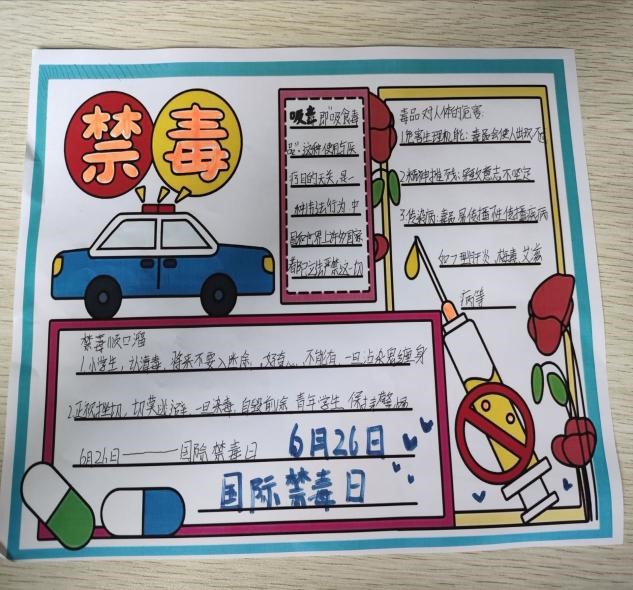 禁毒
吸毒即吸食毒
品,这种使用与医
疗目的无关,是一
种违法行为,中
国和世界上许多国家
都立法严禁这一切
毒品对人体的危害:
1.危害生理机能:毒品会使人出现不
2.精神摧残:导致意志不坚定
3.传染病:毒品易传播可性传播疾病
如乙型肝炎、梅毒、艾滋
病等
禁毒顺口溜
1.小学生,认清毒,将来不要入迷途,好奇心,不能有,一旦沾众恶缠身
2.正视挫切,切莫逃避,一旦染毒,自毁前途,青年学生,保持警惕
6月26日———国际禁毒日
6月26日
国际禁毒日